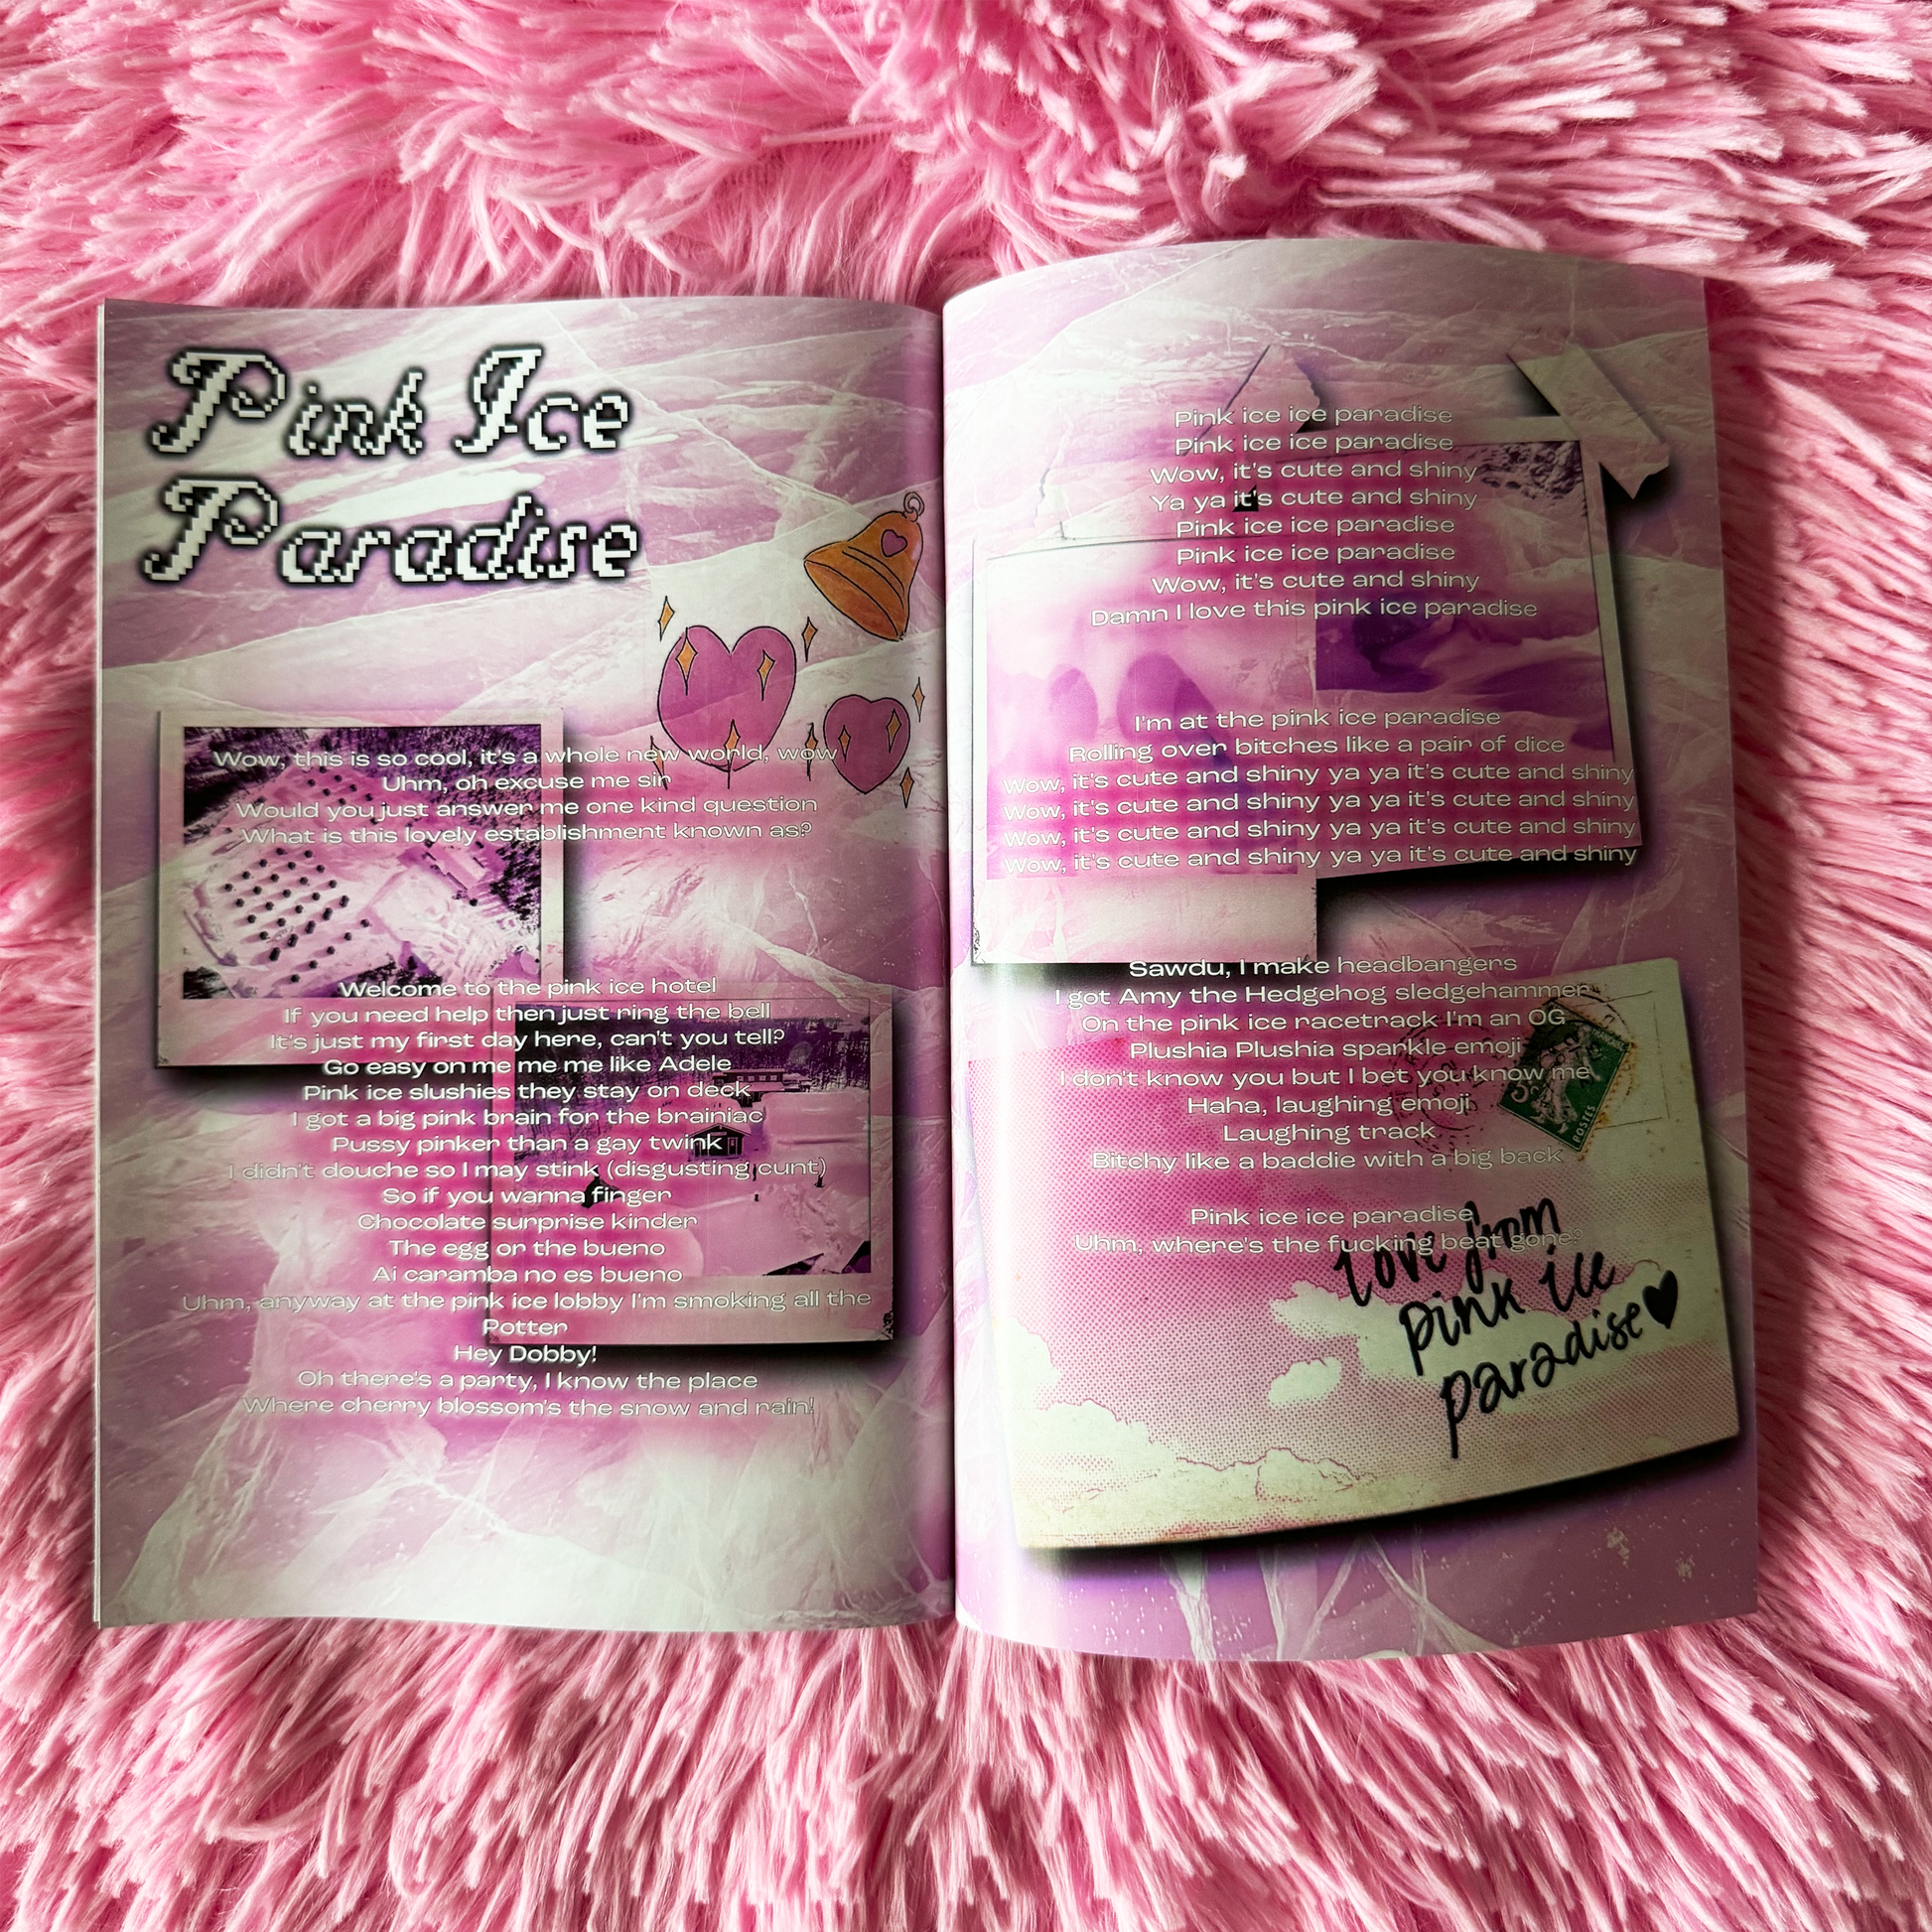 Pink Ice
Paradise
Wow, this is so cool, it's a whole new world, wow
Uhm, oh excuse me sir
Would you just answer me one kind question
What is this lovely establishment known as?
Welcome to the pink ice hotel
If you need help then just ring the bell
It's just my first day here, can't you tell?
Go easy on me me me like Adele
Pink ice slushies they stay on deck
I got a big pink brain for the brainiac
Pussy pinker than a gay twink
I didn't douche so I may stink (disgusting cunt)
So if you wanna finger
Chocolate surprise kinder
The egg or the bueno
Ai caramba no es bueno
Uhm, anyway at the pink ice lobby I'm smoking all the
Potter
Hey Dobby!
Oh there's a party, I know the place
Where cherry blossom's the snow and rain!
Pink ice ice paradise
Pink ice ice paradise
Wow, it's cute and shiny
Ya ya it's cute and shiny
Pink ice ice paradise
Pink ice ice paradise
Wow, it's cute and shiny
Damn I love this pink ice paradise
I'm at the pink ice paradise
Rolling over bitches like a pair of dice
Wow, it's cute and shiny ya ya it's cute and shiny
Wow, it's cute and shiny ya ya it's cute and shiny
Wow, it's cute and shiny ya ya it's cute and shiny
Wow, it's cute and shiny ya ya it's cute and shiny
Sawdu, I make headbangers
I got Amy the Hedgehog sledgehammer
On the pink ice racetrack I'm an OG
Plushia Plushia sparkle emoji
I don't know you but I bet you know me
Haha, laughing emoji
Laughing track
Bitchy like a baddie with a big back
Pink ice ice paradise
Uhm, where's the fucking beat gone?
POSTES
love from
pink ice
paradise